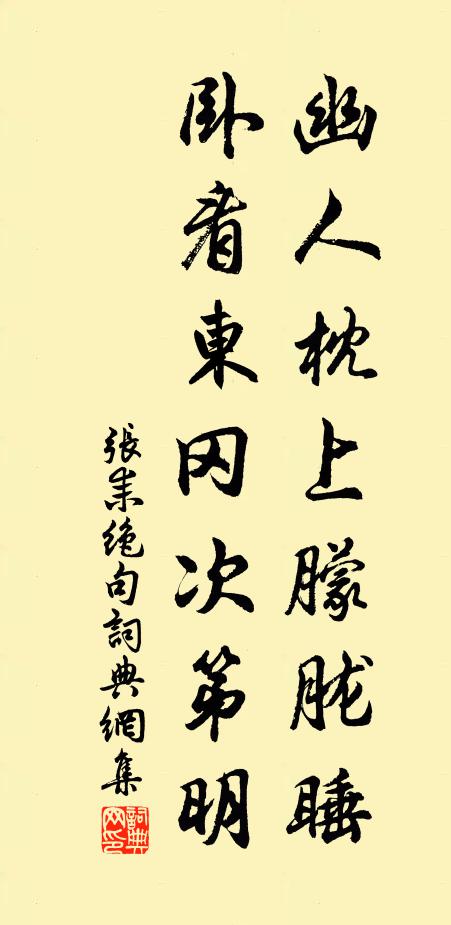 幽人枕上朦胧睡
卧看東冈次第明
張耒绝句詞典網集
詞典网印